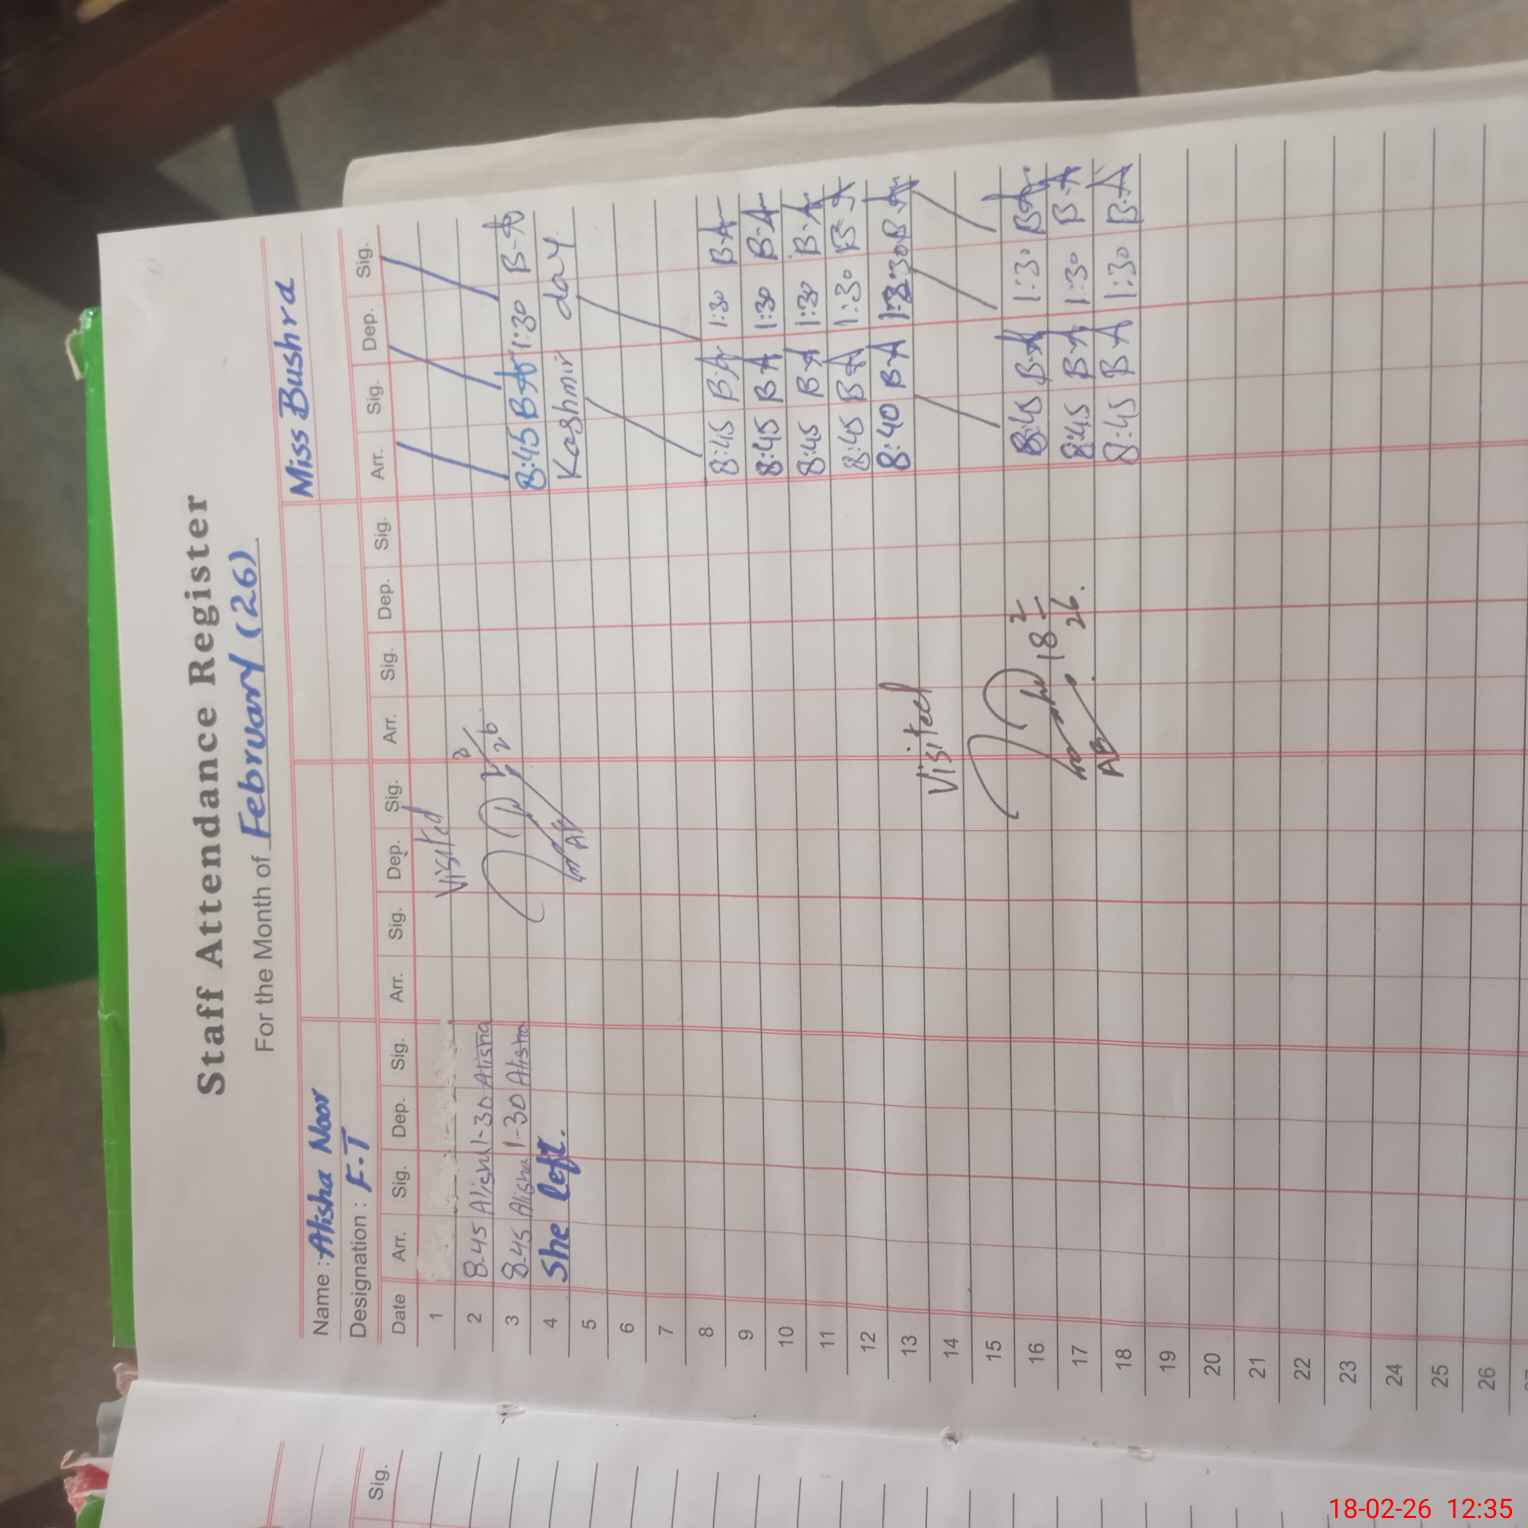 Staff Attendance Register
For the Month of February (26)
Name : Alisha Noor Miss Bushra
Designation : F.T
Date Arr. Sig. Dep. Sig. Arr. Sig. Dep. Sig. Arr. Sig. Dep. Sig. Arr. Sig. Dep. Sig.
1 Visited
2 8.45 Alisha 1-30 Alisha
3 8.45 Alisha 1-30 Alisha
4 She left. 8:45 B-A 1:30 B-A
5 Kashmir day
6
7
8
9 8:45 B-A 1:30 B-A
10 8:45 B A 1:30 B-A
11 8:45 B A 1:30 B-A
12 8:45 B A 1:30 B-A
13 8:40 B-A 1:30 B-A
14 Visited
15
16 8:45 B-A 1:30 B-A
17 8:45 B-A 1:30 B-A
18 8:45 B A 1:30 B-A
18 2
26.
19
20
21
22
23
24
25
26
Sig.
18-02-26 12:35